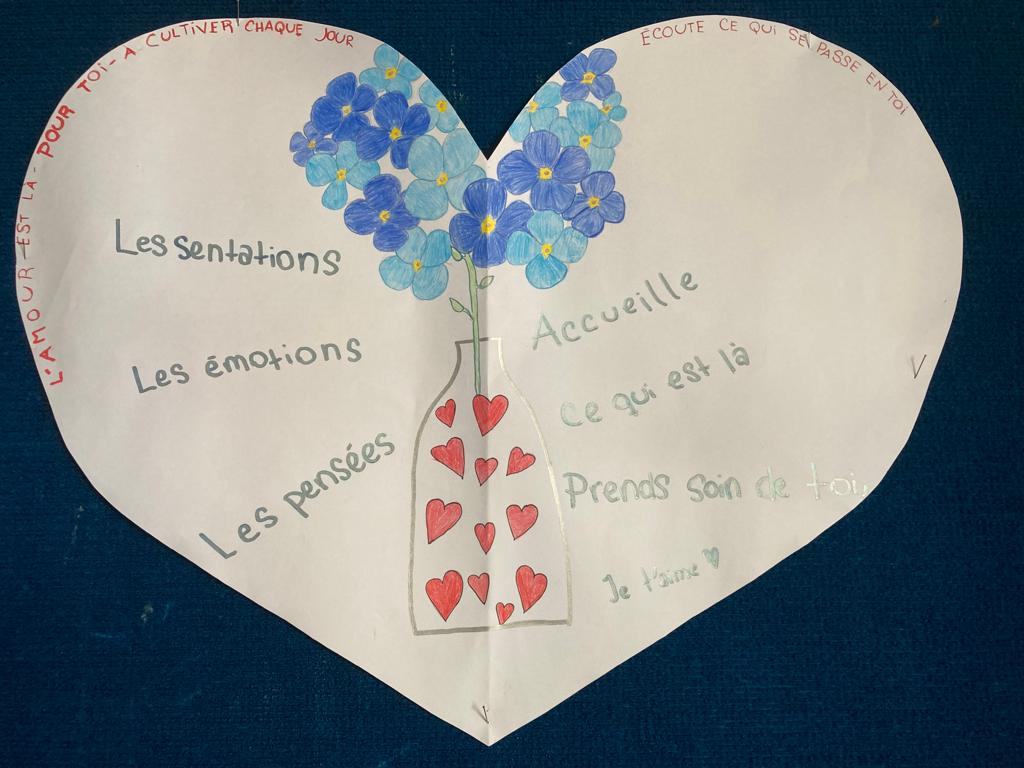 L'AMOUR - EST LÀ - POUR TOI - A CULTIVER CHAQUE JOUR
ÉCOUTE CE QUI SE PASSE EN TOI
Les sentations
Les émotions
Les pensées
Accueille
Ce qui est là
Prends soin de toi
Je t'aime